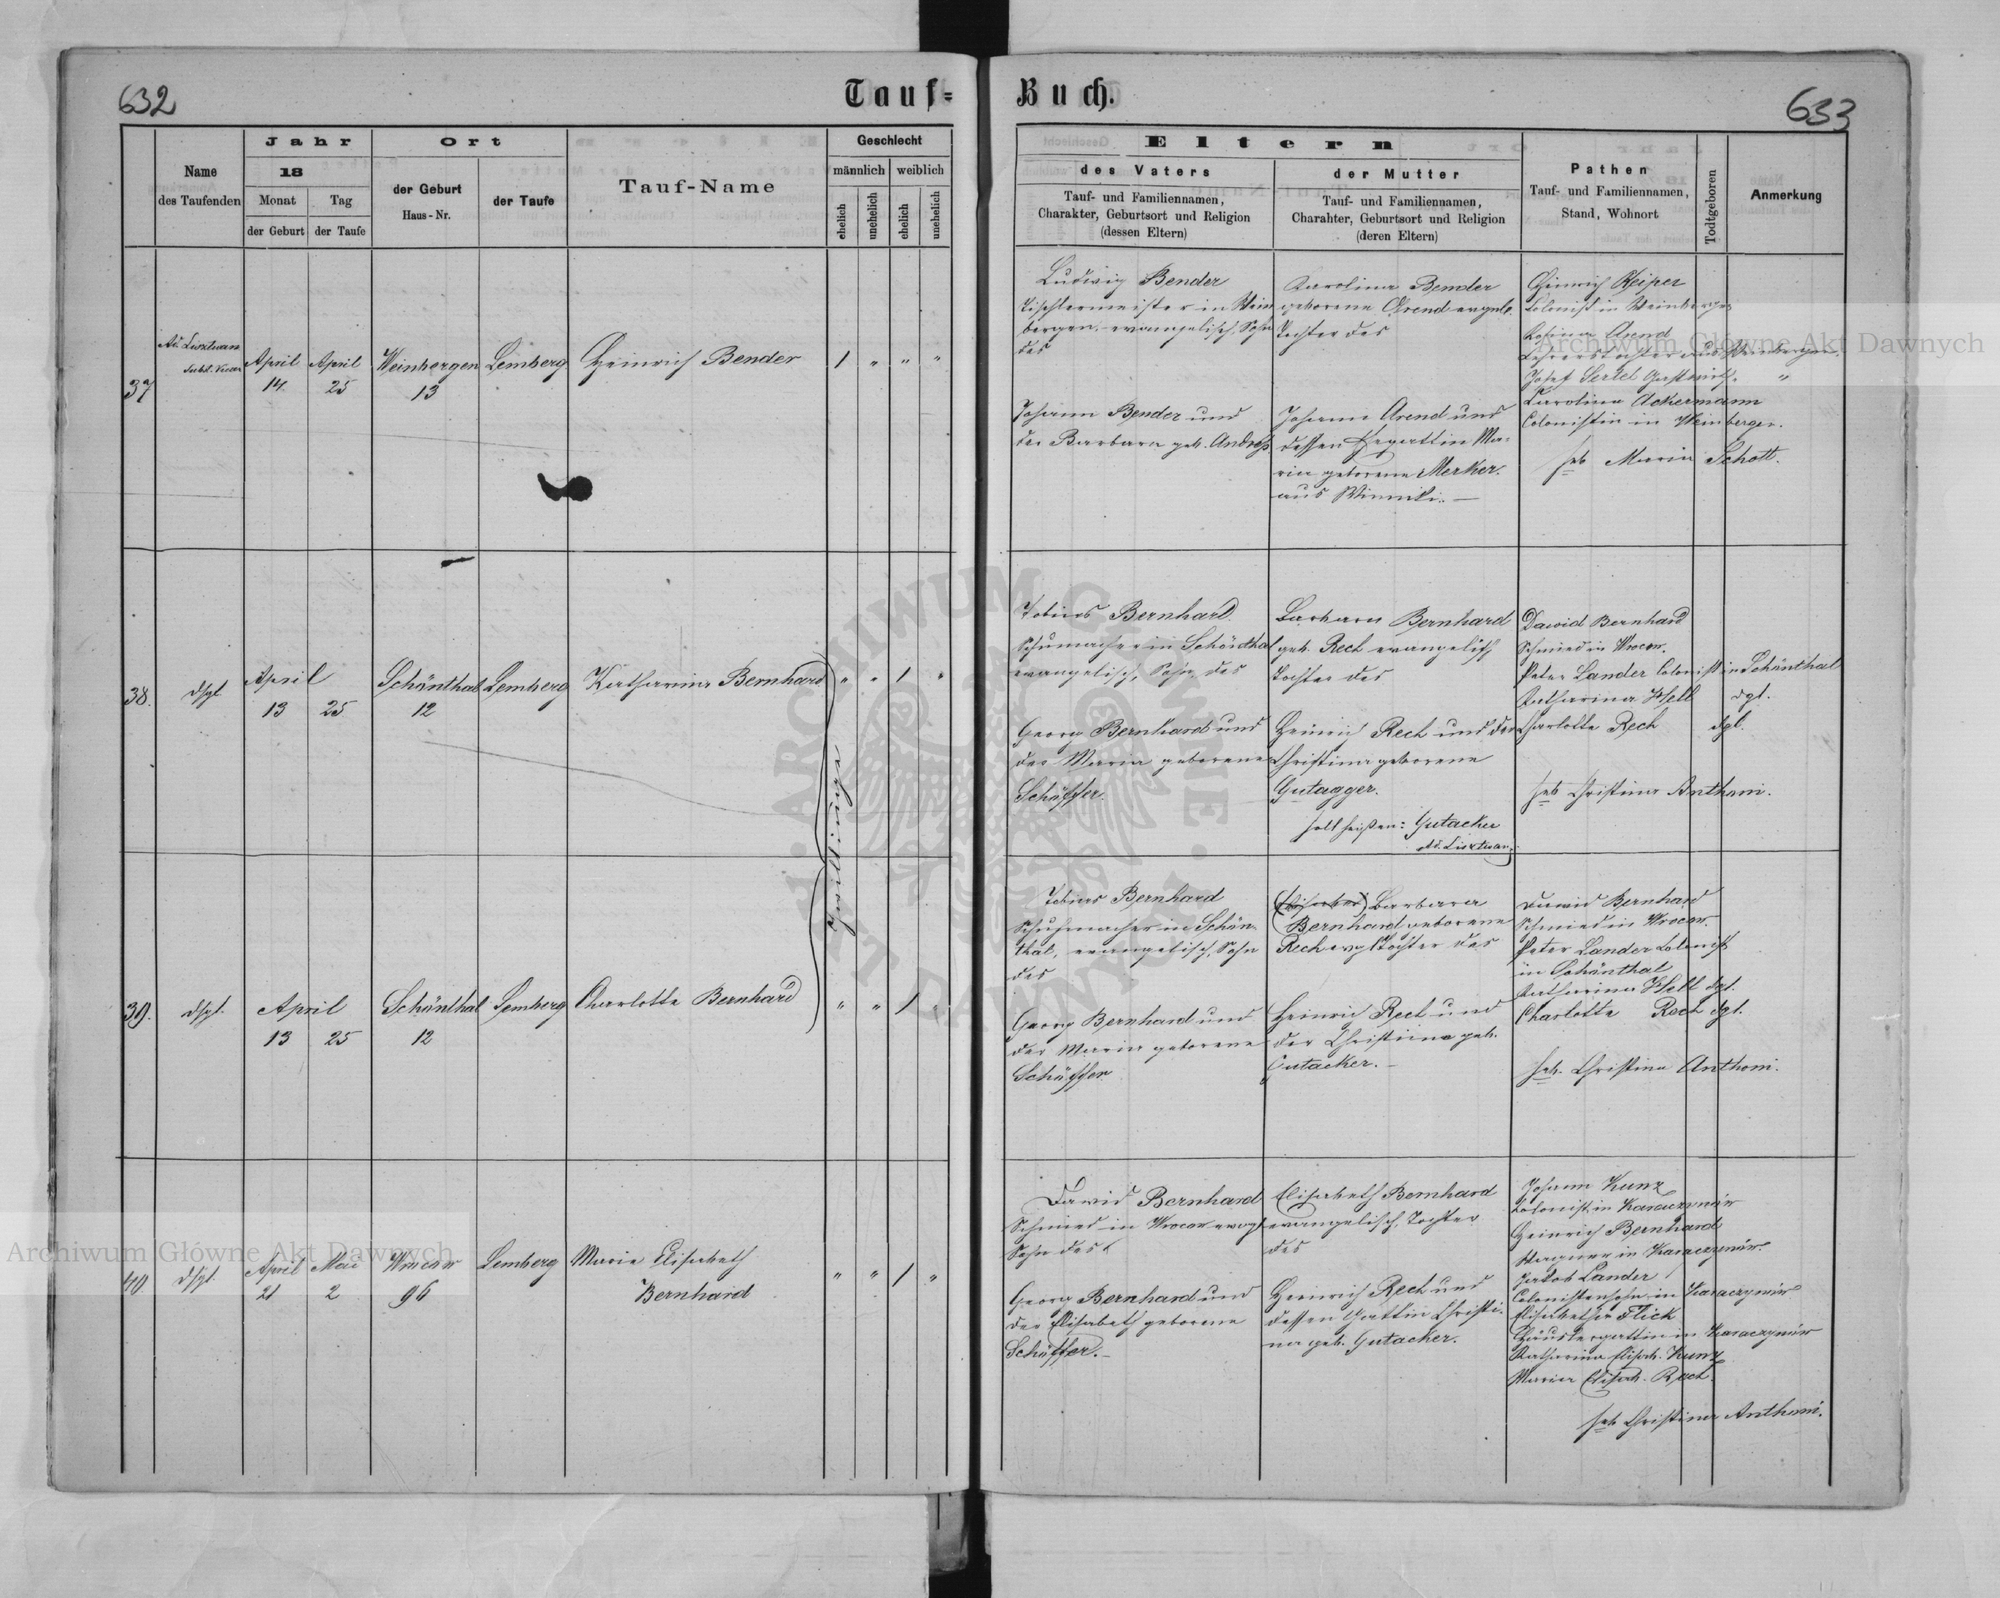 632
Tauf=
Buch.
633
Name
des Taufenden
Jahr
18
Monat
Tag
der Geburt
der Taufe
Ort
der Geburt
Haus-Nr.
der Taufe
Tauf-Name
Geschlecht
männlich
weiblich
ehelich
unehelich
ehelich
unehelich
Eltern
des Vaters
Tauf- und Familiennamen,
Charakter, Geburtsort und Religion
(dessen Eltern)
der Mutter
Tauf- und Familiennamen,
Charahter, Geburtsort und Religion
(deren Eltern)
Pathen
Tauf- und Familiennamen,
Stand, Wohnort
Todtgeboren
Anmerkung
37
Ad. Lisztwan
April
14
April
25
Weinbergen
13
Lemberg
Heinrich Bender
1 " " "
Ludwig Bender
Tischlermeister in Wein
bergen, evangelisch, Sohn
des
Johann Bender und
der Barbara geb. Andress
Karolina Bender
geborene Arend evngel.
Tochter des
Johann Arend und
dessen Ehegattin Ma-
ria geborene Merker.
aus Winniki.
Heinrich Keiper
Colonist in Weinbergen
Rosina Arend
Lehrerstochter aus Weinbergen.
Josef Sertel Gastwirth "
Carolina Ackermann
Colonistin in Weinbergen.
heb Maria Schott.
38.
dsgl
April
13
25
Schönthal
12
Lemberg
Katharina Bernhard
" " 1 "
Zwillinge
Tobias Bernhard.
Schumacher in Schönthal
evangelisch, Sohn des
Georg Bernhard und
der Maria geborene
Schäffer.
Barbara Bernhard
geb. Rech evangelisch
Tochter des
Heinrich Rech und der
Christina geborene
Gutagger.
soll heißen: Gutacker
Ad. Lisztwan
Dawid Bernhard
Schmied in Wrocow.
Peter Lander Colonist in Schönthal
Katharina Well dgl.
Charlotte Rech dgl.
heb Christina Anthoni.
39.
dsgl.
April
13
25
Schönthal
12
Lemberg
Charlotta Bernhard
" " 1 "
Tobias Bernhard
Schuhmacher in Schön-
thal, evangelisch, Sohn
des
Georg Bernhard und
der Maria geborene
Schäffer
(Elisabeth) Barbara
Bernhard geborene
Rech evgl. Tochter des
Heinrich Rech und
der Christina geb.
Gutacker.
Dawid Bernhard
Schmied in Wrocow.
Peter Lander Colonist
in Schönthal
Katharina Well dgl.
Charlotte Rech dgl.
heb. Christina Anthoni.
40
dsgl.
April
21
Mai
2
Wrocow
96
Lemberg
Maria Elisabeth
Bernhard
" " 1 "
Dawid Bernhard
Schmied in Wrocow evngl
Sohn des
Georg Bernhard und
der Elisabeth geborene
Schäffer.
Elisabeth Bernhard
evangelisch, Tochter
des
Heinrich Rech und
dessen Gattin Christi-
na geb. Gutacker.
Johann Kunz
Colonist in Karaczynów
Heinrich Bernhard
Wagner in Karaczynów.
Jakob Lander
Colonistensohn in Karaczynów
Elisabetha Flick
Häuslergattin in Karaczynów
Katharina Elisab. Kunz
Maria Elisab. Rech
heb Christina Anthoni.
Archiwum Główne Akt Dawnych
Archiwum Główne Akt Dawnych
ARCHIWUM GŁÓWNE AKT DAWNYCH